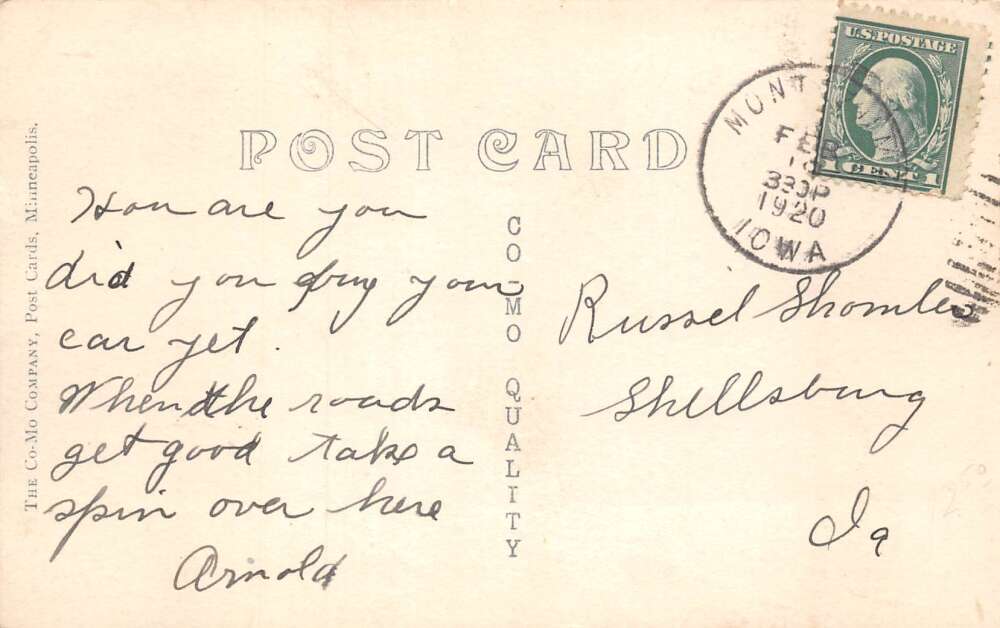 THE CO-MO COMPANY, Post Cards, Minneapolis.
POST CARD
CO-MO QUALITY
U.S. POSTAGE
1 1
FEB
330P
1920
IOWA
How are you
did you buy your
car yet.
When the roads
get good take a
spin over here
Arnold
Russel
Shellsburg
Ia